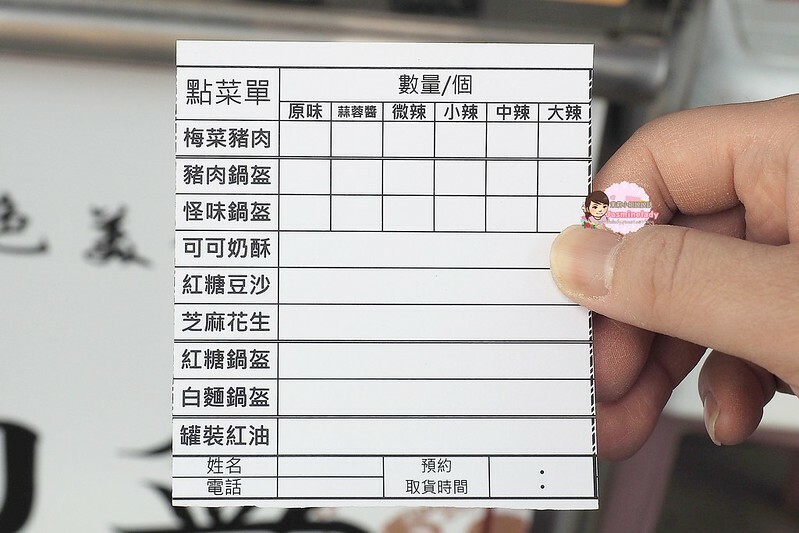 點菜單
數量/個
原味 蒜蓉醬 微辣 小辣 中辣 大辣
梅菜豬肉
豬肉鍋盔
怪味鍋盔
可可奶酥
紅糖豆沙
芝麻花生
紅糖鍋盔
白麵鍋盔
罐裝紅油
姓名
電話
預約
取貨時間
:
色美
Jasminelady